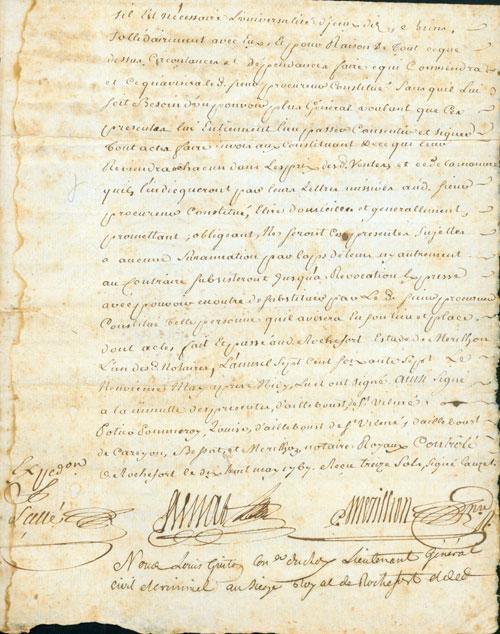 sil Est nécessaire L'universalité d'jeux de ce biens
Sollidairement avec Eux, Et pour Raison De tout ceque
dessus Circonstances et deppendances faire cequi Conviendra
et Cequavisera led. sieur procureur Constitué Sans quil Lui
soit Besoin d'un pouvoir plus Général voulant que Ces
presentes lui Entiennent lieu passer Consentir et signer
tout actes faire envoir aux Constituant De ce qui leur
Reviendra chacun dans Les prix des d. Ventes et ce de la maniere
quils l'indecqueront par leurs Lettres missives aud. sieur
procureur Constitué, Elire domicile et generallement,
promettant, obligeant, Ne seront Ces presentes Sujettes
a aucune Surannation par laps de tems ny autrement
au Contraire Subsisteront Jusqu'a Revocation Expresse
avec pouvoir en outre de substituer par Le d. sieur procureur
Constitué telle personne quil avisera En son lieu et place
dont acte, fait et passé aud. Rochefort Estude de Merilhon
L'un des d. Notaires, L'an mil Sept Cent soixante Sept Le
Neuvieme May apres Midy Lu et ont signé Ainsi Signé
a la minutte des presentes, d'ailleboust de St Vilmé
Potier Pommeroy, Louise, d'ailleboust de St Vilmé, d'ailleboust
de Carqyon, et Merilhon notaires Royaux Controlé
a Rochefort le dix huit may 1767 Reçu treize Sols Signé
Expedon
Sallé
Merilhon
Nous Louis Lieutenant Général
civil et criminel au siege Royal de Rochefort